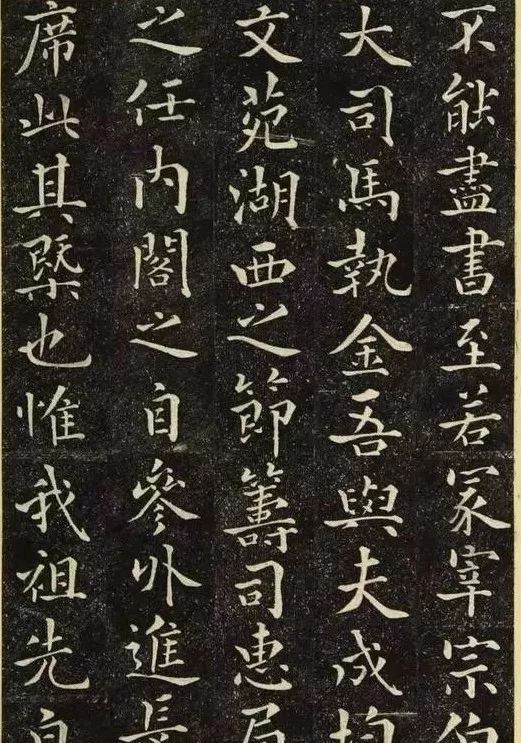 不能盡書至若冢宰宗伯
大司馬執金吾與夫成均
文苑湖西之節籌司惠局
之任内閣之自參外進長
席此其槩也惟我祖先自